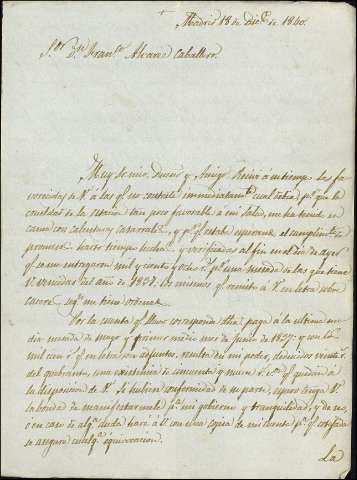 Madrid 18 de Dic.e de 1840.
S.or D.n Fran.co Alvarez Caballero.
Muy Sr. mio, Dueño y Amigo: Recivi á su tiempo las fa-
vorecidas de V. á las q.e no contexté inmediatam.te cual debia p.r que la
crueldad de la estacion tan poco favorable á mi salud, me ha tenido en
cama con calentura catarral, y p.r q.e estaba
hecho y verificado al fin en el dia de ayer
q.e se me entregaron mil y ciento y ocho r.s p.r una mesada de las que tiene
V. vencidas del año de 1827. los mismos q.e remito á V. en letra sobre
Cacere segun me tiene ordenado.
Por la cuenta q.e llevo corresponde dha. paga á la ultima me-
dia mesada de mayo y primera media de Junio de 1827: y con los
mil cien r.s q.e en letra son adjuntos, resulta en mi poder, deducidos veinte r.s
del quebranto, una existencia de cincuenta y nueve r.s q.e quedan á
la disposicion de V. Si hubiere conformidad de su parte, espero tenga V.
la bondad de manifestarmelo p.a mi gobierno y tranquilidad, y de no,
ó en caso de alg.a duda haré á V. con una copia de mi cuenta p.a q.e cotejada
se asegure cualq.a equivocacion.
La